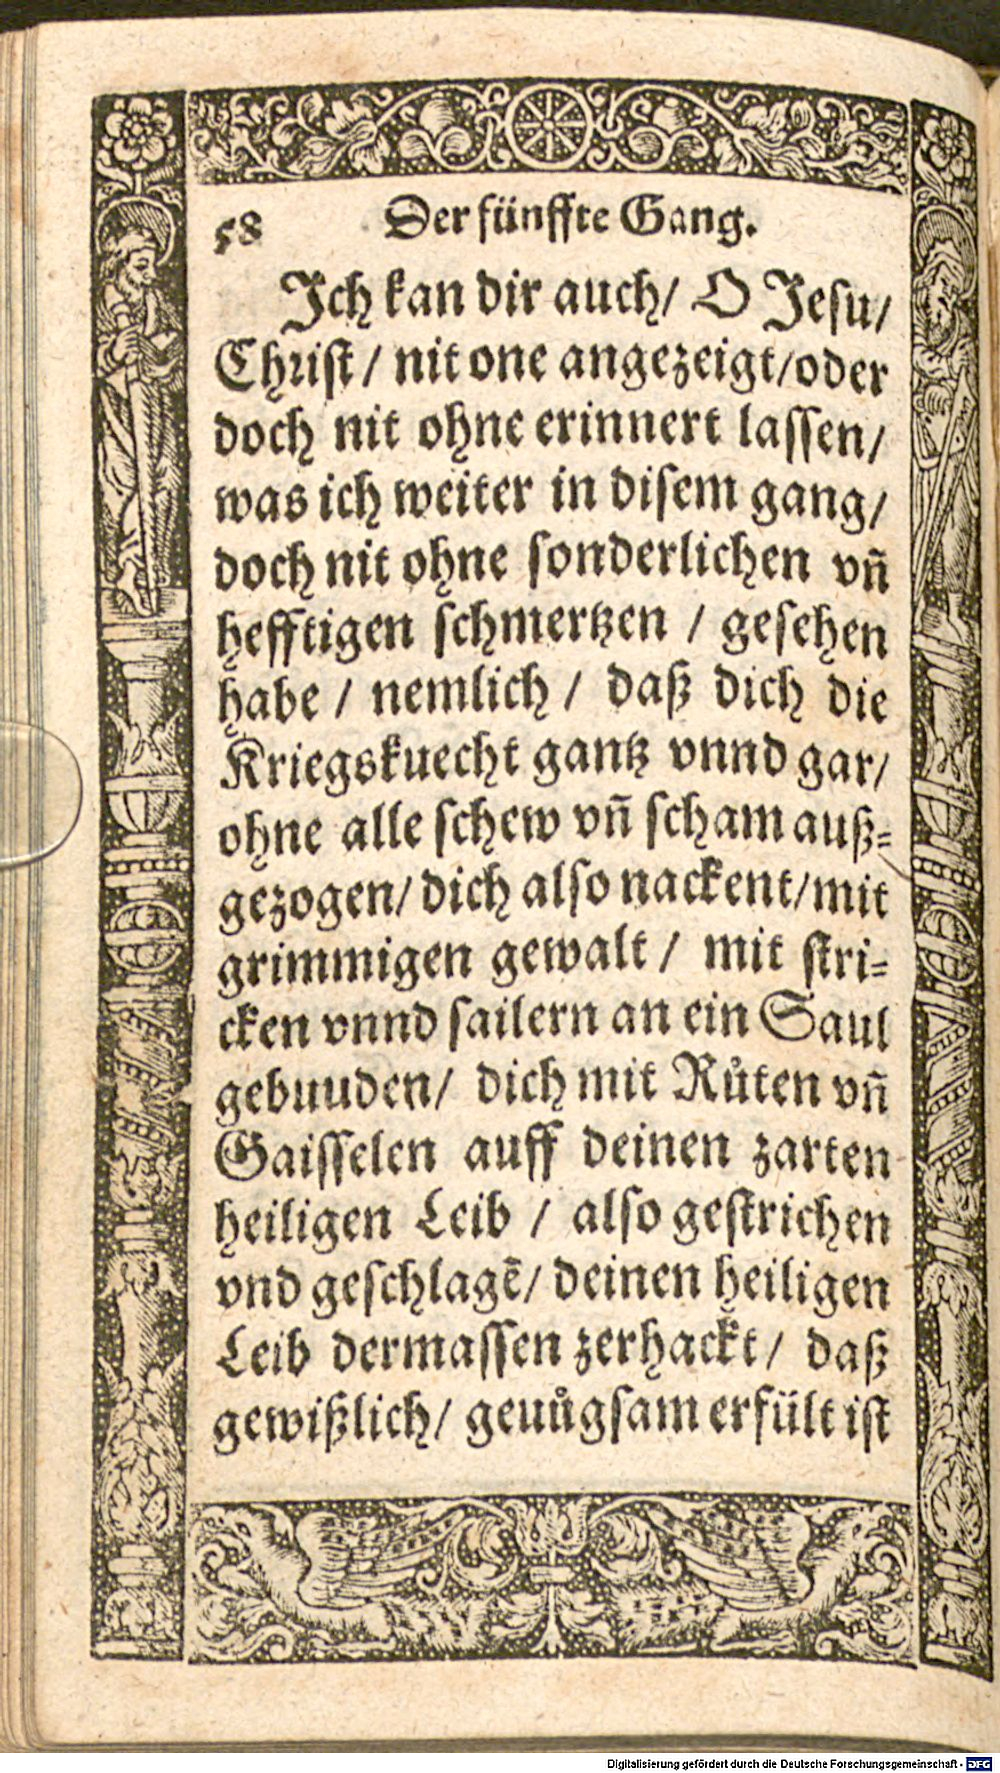 58 Der fünffte Gang.
Ich kan dir auch/ O Jesu/
Christ/ nit one angezeigt/oder
doch nit ohne erinnert lassen/
was ich weiter in disem gang/
doch nit ohne sonderlichen vñ
hefftigen schmertzen / gesehen
habe / nemlich / daß dich die
Kriegskuecht gantz vnnd gar/
ohne alle schew vñ scham auß-
gezogen/ dich also nackent/mit
grimmigen gewalt / mit stri-
cken vnnd sailern an ein Saul
gebuuden/ dich mit Růten vñ
Gaisselen auff deinen zarten
heiligen Leib / also gestrichen
vnd geschlagẽ/ deinen heiligen
Leib dermassen zerhackt/ daß
gewißlich/ geuůgsam erfült ist
Digitalisierung gefördert durch die Deutsche Forschungsgemeinschaft - DFG